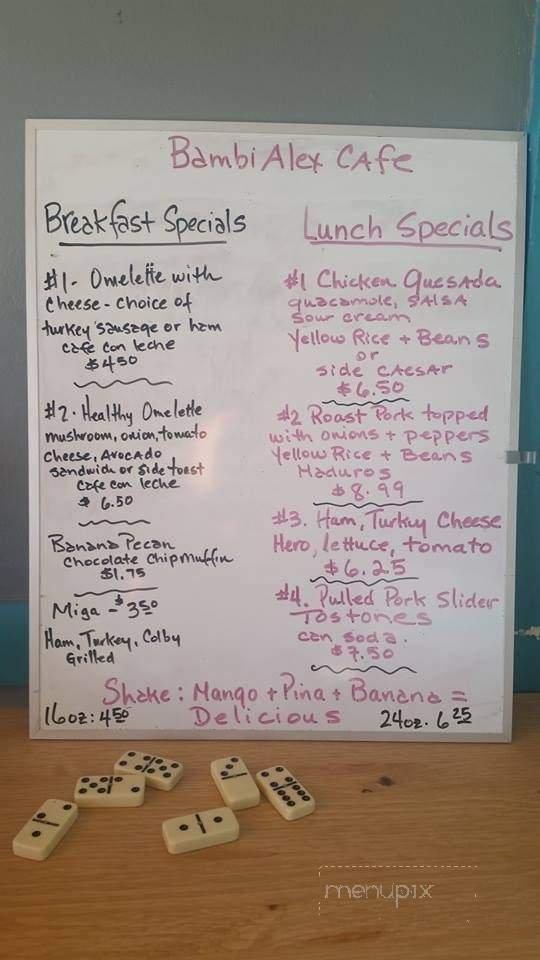 Bambi Alex CAfe
Breakfast Specials
#1- Omelette with
Cheese - choice of
turkey sausage or ham
cafe con leche
$ 4.50
#2. Healthy Omelette
mushroom, onion, tomato
cheese, Avocado
sandwich or side toast
cafe con leche
$ 6.50
Banana Pecan
Chocolate Chip muffin
$1.75
Miga - $3.50
Ham, Turkey, Colby
Grilled
Lunch Specials
#1 Chicken Quesada
guacamole, SAlSA
sour cream
Yellow Rice + Beans
or
side CAESAr
$6.50
#2 Roast Pork topped
with onions + peppers
Yellow Rice + Beans
Maduros
$8.99
#3. Ham, Turkey Cheese
Hero, lettuce, tomato
$6.25
#4. Pulled Pork Slider
Tostones
can soda.
$7.50
Shake: Mango + Pina + Banana =
Delicious
16oz: 4.50
24oz. 6.25
menupix